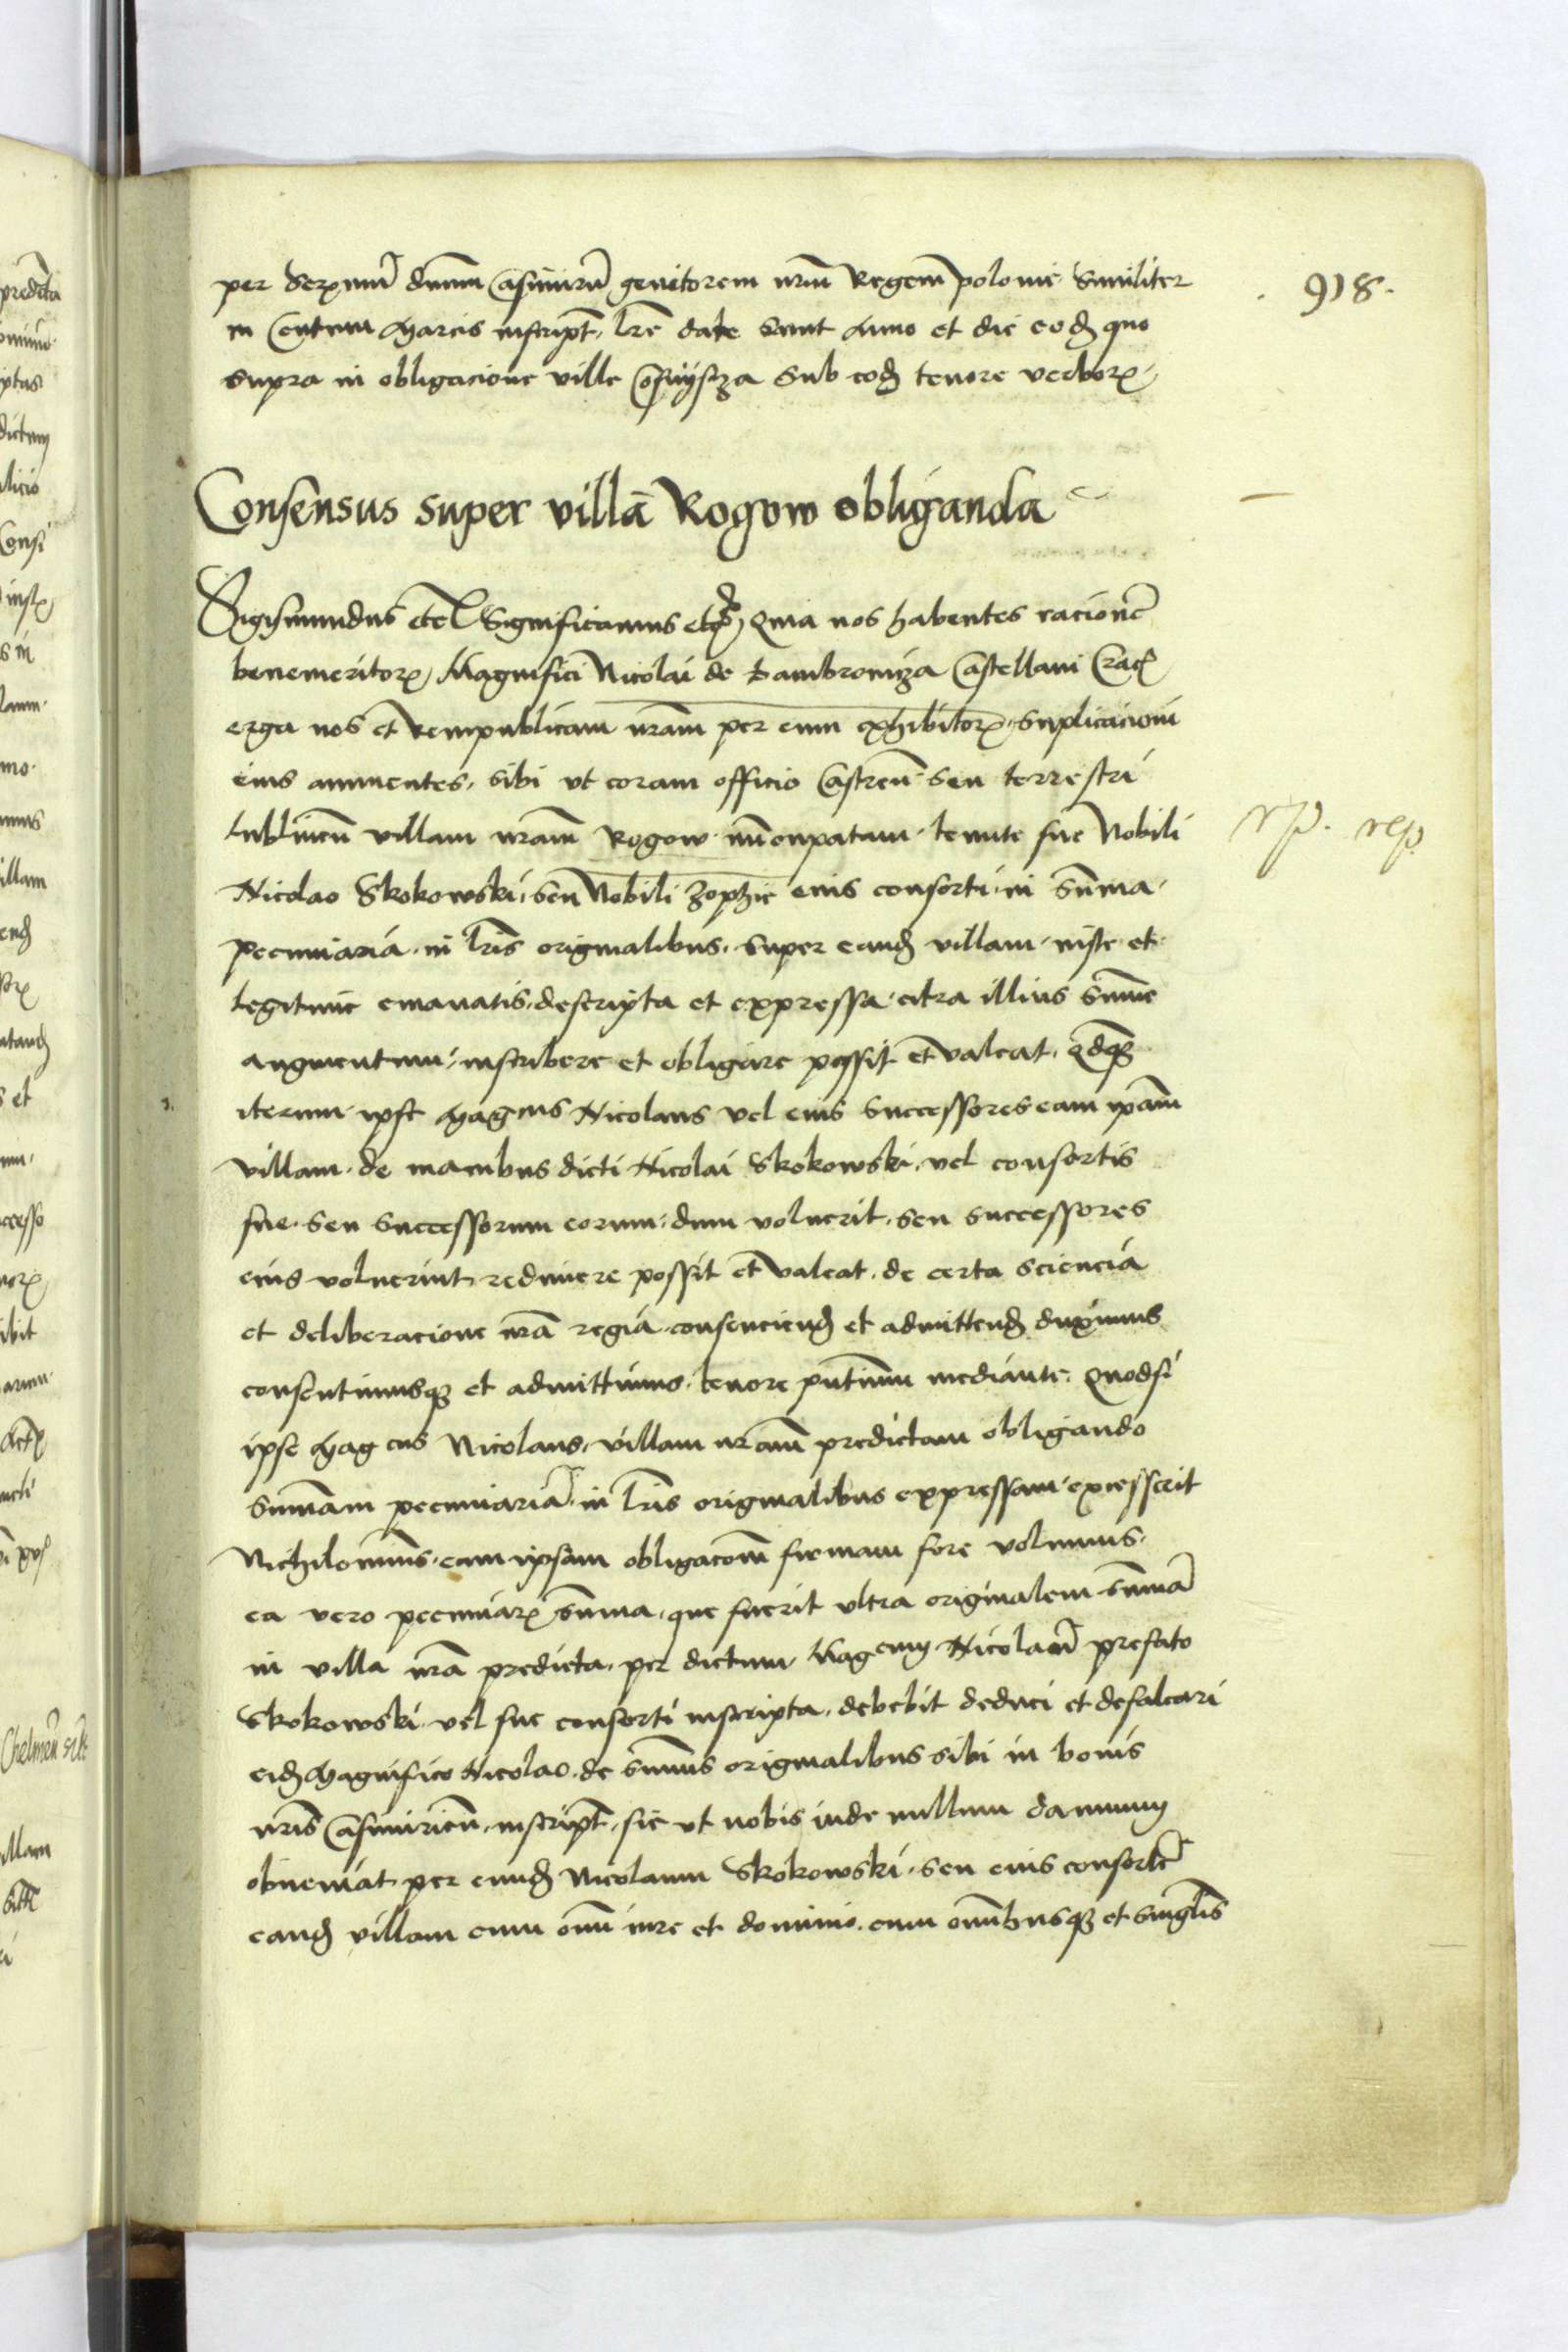 per Serenm̄ dnm̄ Casimirū genitorem nrm̄ Regem polonie similiter
in Centum Marcis inscript. lre date sunt Anno et die eod quo
supra in obligacione ville sub eod tenore verbor
918.
Consensus super villā Rogow obliganda
Sigismundus etc Significamus etc Quia nos habentes racionē
benemeritor Magnifici Nicolai de Dambrowicza Castellani Crac
erga nos et Rempublicam nram per eum exhibitor suplicacioni
eius annuentes, sibi ut coram officio Castren seu terrestri
lublinen villam nram Rogow nuncupatam tenute sue Nobili
rp. rep
Nicolao Skokowski, seu Nobili Zophie eius consorti, in sūma
pecuniaria in lris originalibus, super eand villam iuste et
legitime emanatis, descripta et expressa citra illius sūme
augmentum, inscribere et obligare possit et valeat, Qdq
iterum ipse Magcus Nicolaus vel eius successores eam ipam
villam de manibus dicti Nicolai Skokowski, vel consortis
sue, seu successorum eorum, dum voluerit, seu successores
eius voluerint redimere possit et valeat, de certa sciencia
et deliberacione nra regia consenciend et admittend duximus
consentimusq et admittimus, tenore pntium mediante, Quodsi
ipse Magcus Nicolaus, villam nram predictam obligando
sūmam pecuniariā in lris originalibus expressam excesserit
Nichilominus, eam ipsam obligacom firmam fore volumus,
ea vero pecuniar sūma, que fuerit ultra originalem sūmā
in villa nra predicta, per dictum Magcum Nicolaū prefato
Skokowski vel sue consorti inscripta, debebit deduci et defalcari
eid Magnifico Nicolao, de sūmis originalibus sibi in bonis
nris Casimirien, inscript, sic ut nobis inde nullum damnum
obveniat per eund Nicolaum Skokowski, seu eius consortē
eand villam cum omi iure et dominio, cum omibusq et singlis